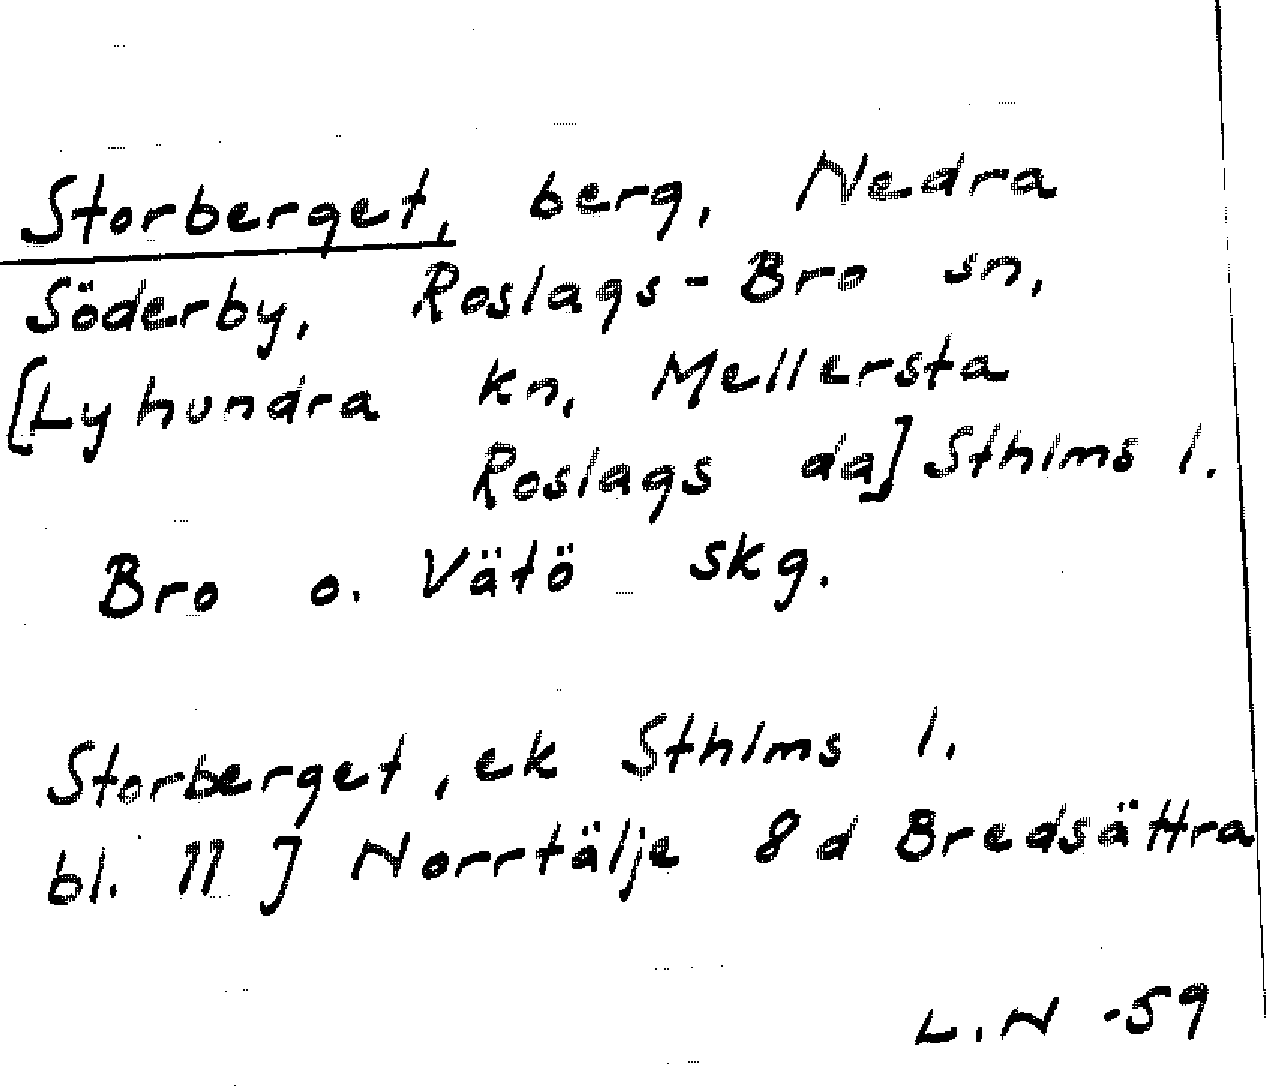 Storberget, berg, Nedra
Söderby, Roslags-Bro sn,
[Lyhundra kn, Mellersta
Roslags da] Sthlms l.
Bro o. Vätö skg.
Storberget, ek Sthlms l.
bl. 11 J Norrtälje 8 d Bredsättra
L.N -59